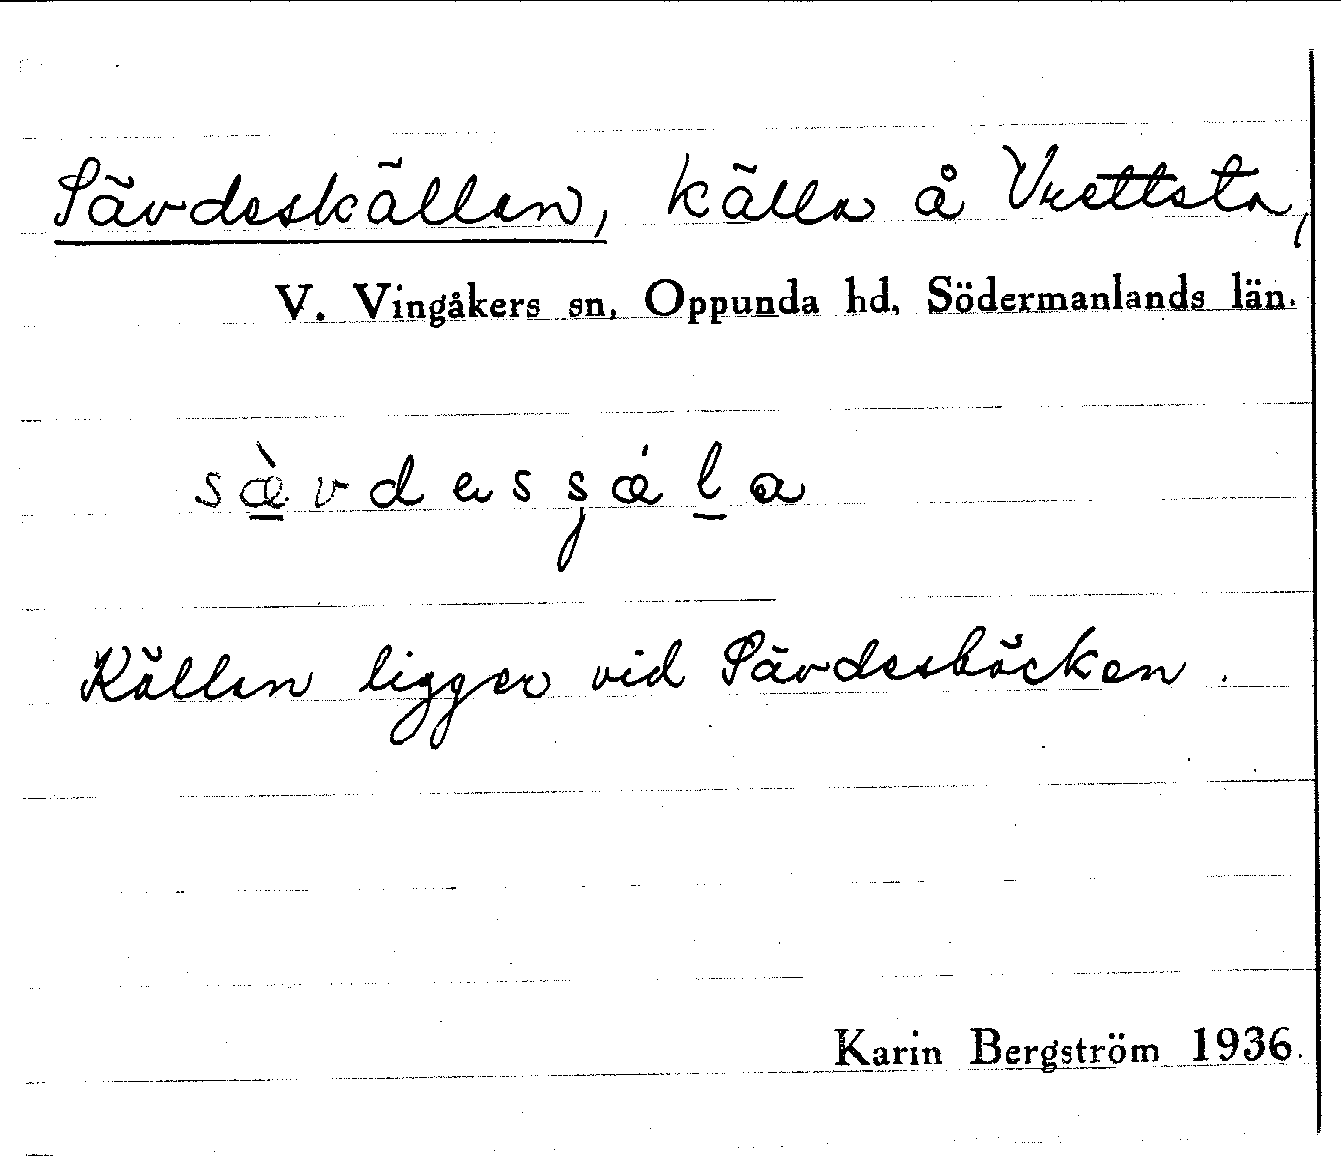 Sävdeskällan, källa å Vrettsta,
V. Vingåkers sn, Oppunda hd, Södermanlands län.
sæ̀vdasʂǽla
Källan ligger vid Sävdesbäcken.
Karin Bergström 1936.